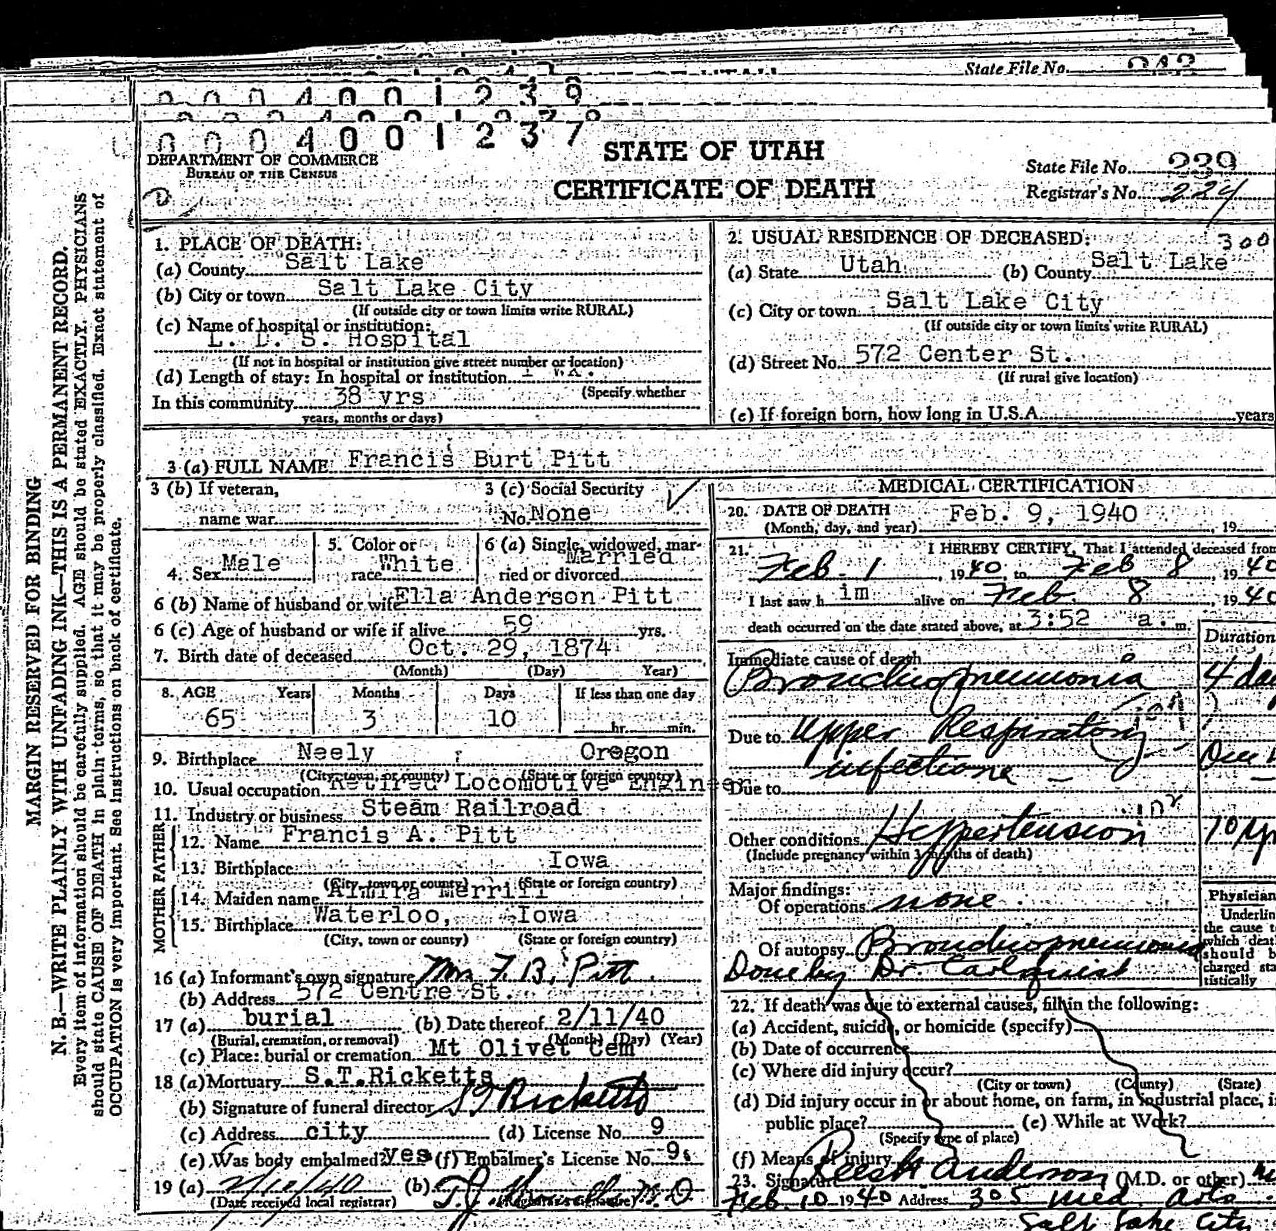 State File No. 243
0 0 0 4 0 0 1 2 3 9
0 0 0 4 0 0 1 2 3 7
DEPARTMENT OF COMMERCE
BUREAU OF THE CENSUS
STATE OF UTAH
CERTIFICATE OF DEATH
State File No. 239
Registrar's No. 224
MARGIN RESERVED FOR BINDING
N. B.—WRITE PLAINLY WITH UNFADING INK—THIS IS A PERMANENT RECORD.
Every item of information should be carefully supplied. AGE should be stated EXACTLY. PHYSICIANS
should state CAUSE OF DEATH in plain terms, so that it may be properly classified. Exact statement of
OCCUPATION is very important. See instructions on back of certificate.
1. PLACE OF DEATH:
(a) County Salt Lake
(b) City or town Salt Lake City
(If outside city or town limits write RURAL)
(c) Name of hospital or institution:
L. D. S. Hospital
(If not in hospital or institution give street number or location)
(d) Length of stay: In hospital or institution
(Specify whether
In this community 38 yrs
years, months or days)
2. USUAL RESIDENCE OF DECEASED: 300
(a) State Utah (b) County Salt Lake
(c) City or town Salt Lake City
(If outside city or town limits write RURAL)
(d) Street No. 572 Center St.
(If rural give location)
(e) If foreign born, how long in U.S.A. years
3 (a) FULL NAME Francis Burt Pitt
3 (b) If veteran,
name war
3 (c) Social Security
No. None
4. Sex Male
5. Color or
race White
6 (a) Single, widowed, mar-
ried or divorced Married
6 (b) Name of husband or wife Ella Anderson Pitt
6 (c) Age of husband or wife if alive 59 yrs.
7. Birth date of deceased Oct. 29, 1874
(Month) (Day) Year)
8. AGE Years Months Days If less than one day
65 3 10 hr. min.
9. Birthplace Neely Oregon
(City, town, or county) (State or foreign country)
10. Usual occupation Retired Locomotive Engineer
11. Industry or business Steam Railroad
FATHER
12. Name Francis A. Pitt
13. Birthplace Iowa
(City, town or county) (State or foreign country)
MOTHER
14. Maiden name Almira Merrill
15. Birthplace Waterloo, Iowa
(City, town or county) (State or foreign country)
16 (a) Informant's own signature Mrs F. B. Pitt
(b) Address 572 Centre St.
17 (a) burial (b) Date thereof 2/11/40
(Burial, cremation, or removal) (Month) (Day) (Year)
(c) Place: burial or cremation Mt Olivet Cem
18 (a) Mortuary S.T.Ricketts
(b) Signature of funeral director S T Ricketts
(c) Address city (d) License No. 9
(e) Was body embalmed? yes (f) Embalmer's License No. 9
19 (a) (b) M. D
(Date received local registrar) (Registrar's signature)
MEDICAL CERTIFICATION
20. DATE OF DEATH Feb. 9, 1940
(Month, day, and year) , 19
21. I HEREBY CERTIFY, That I attended deceased from
Feb. 1, 1940 to Feb 8 1940
I last saw h im alive on Feb 8, 1940
death occurred on the date stated above, at 3:52 a. m.
Duration
Immediate cause of death
Bronchopneumonia 4 day
Due to Upper Respiratory
infections
Due to
Other conditions Hypertension 10 yr
(Include pregnancy within 3 months of death)
Major findings:
Of operations none
Of autopsy Bronchopneumonia
Done by Dr Carlquist
Physician
Underlin
the cause t
which deat
should b
charged sta
tistically
22. If death was due to external causes, fill in the following:
(a) Accident, suicide, or homicide (specify)
(b) Date of occurrence
(c) Where did injury occur?
(City or town) (County) (State)
(d) Did injury occur in or about home, on farm, in industrial place, i
public place? (e) While at Work?
(Specify type of place)
(f) Means of injury
23. Signature Rees H Anderson (M.D. or other) M
Feb 10 1940 Address 305 Med Arts
Salt Lake City